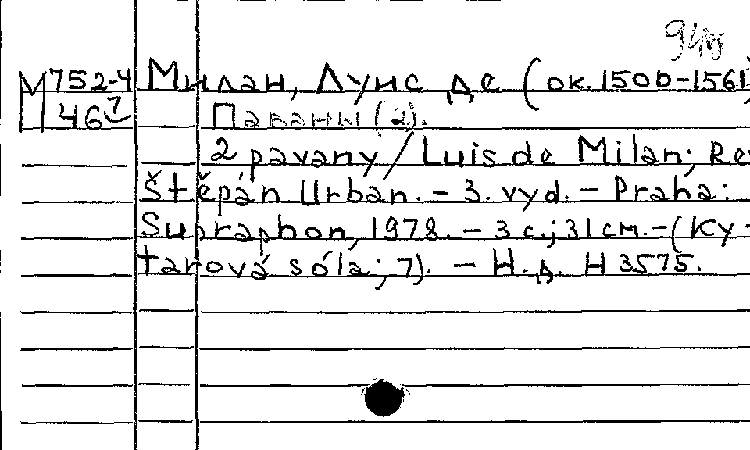 948
М752-4 Милан, Луис де (ок. 1500-1561)
М467 Паваны (2).
2 pavany / Luis de Milan; Re
Štěpán Urban. - 3. vyd. - Praha:
Supraphon, 1978. - 3 с.; 31 см. - (Ky-
tarová sóla; 7). - Н.д. H 3575.